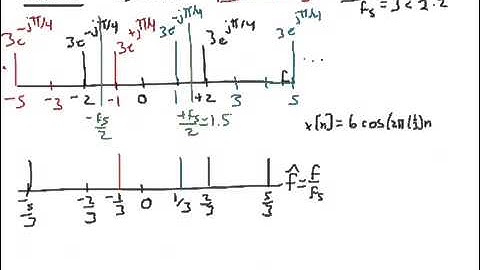 f_s = 3 < 2·2
3e^{-jπ/4} 3e^{-jπ/4} 3e^{+jπ/4} 3e^{-jπ/4} 3e^{jπ/4} 3e^{jπ/4}
-5 -3 -2 -1 0 1 +2 3 f 5 ...
-f_s/2 +f_s/2 = 1.5
x[n] = 6 cos(2π(1/3)n
-5/3 -2/3 -1/3 0 1/3 2/3 5/3 f̂ = f/f_s